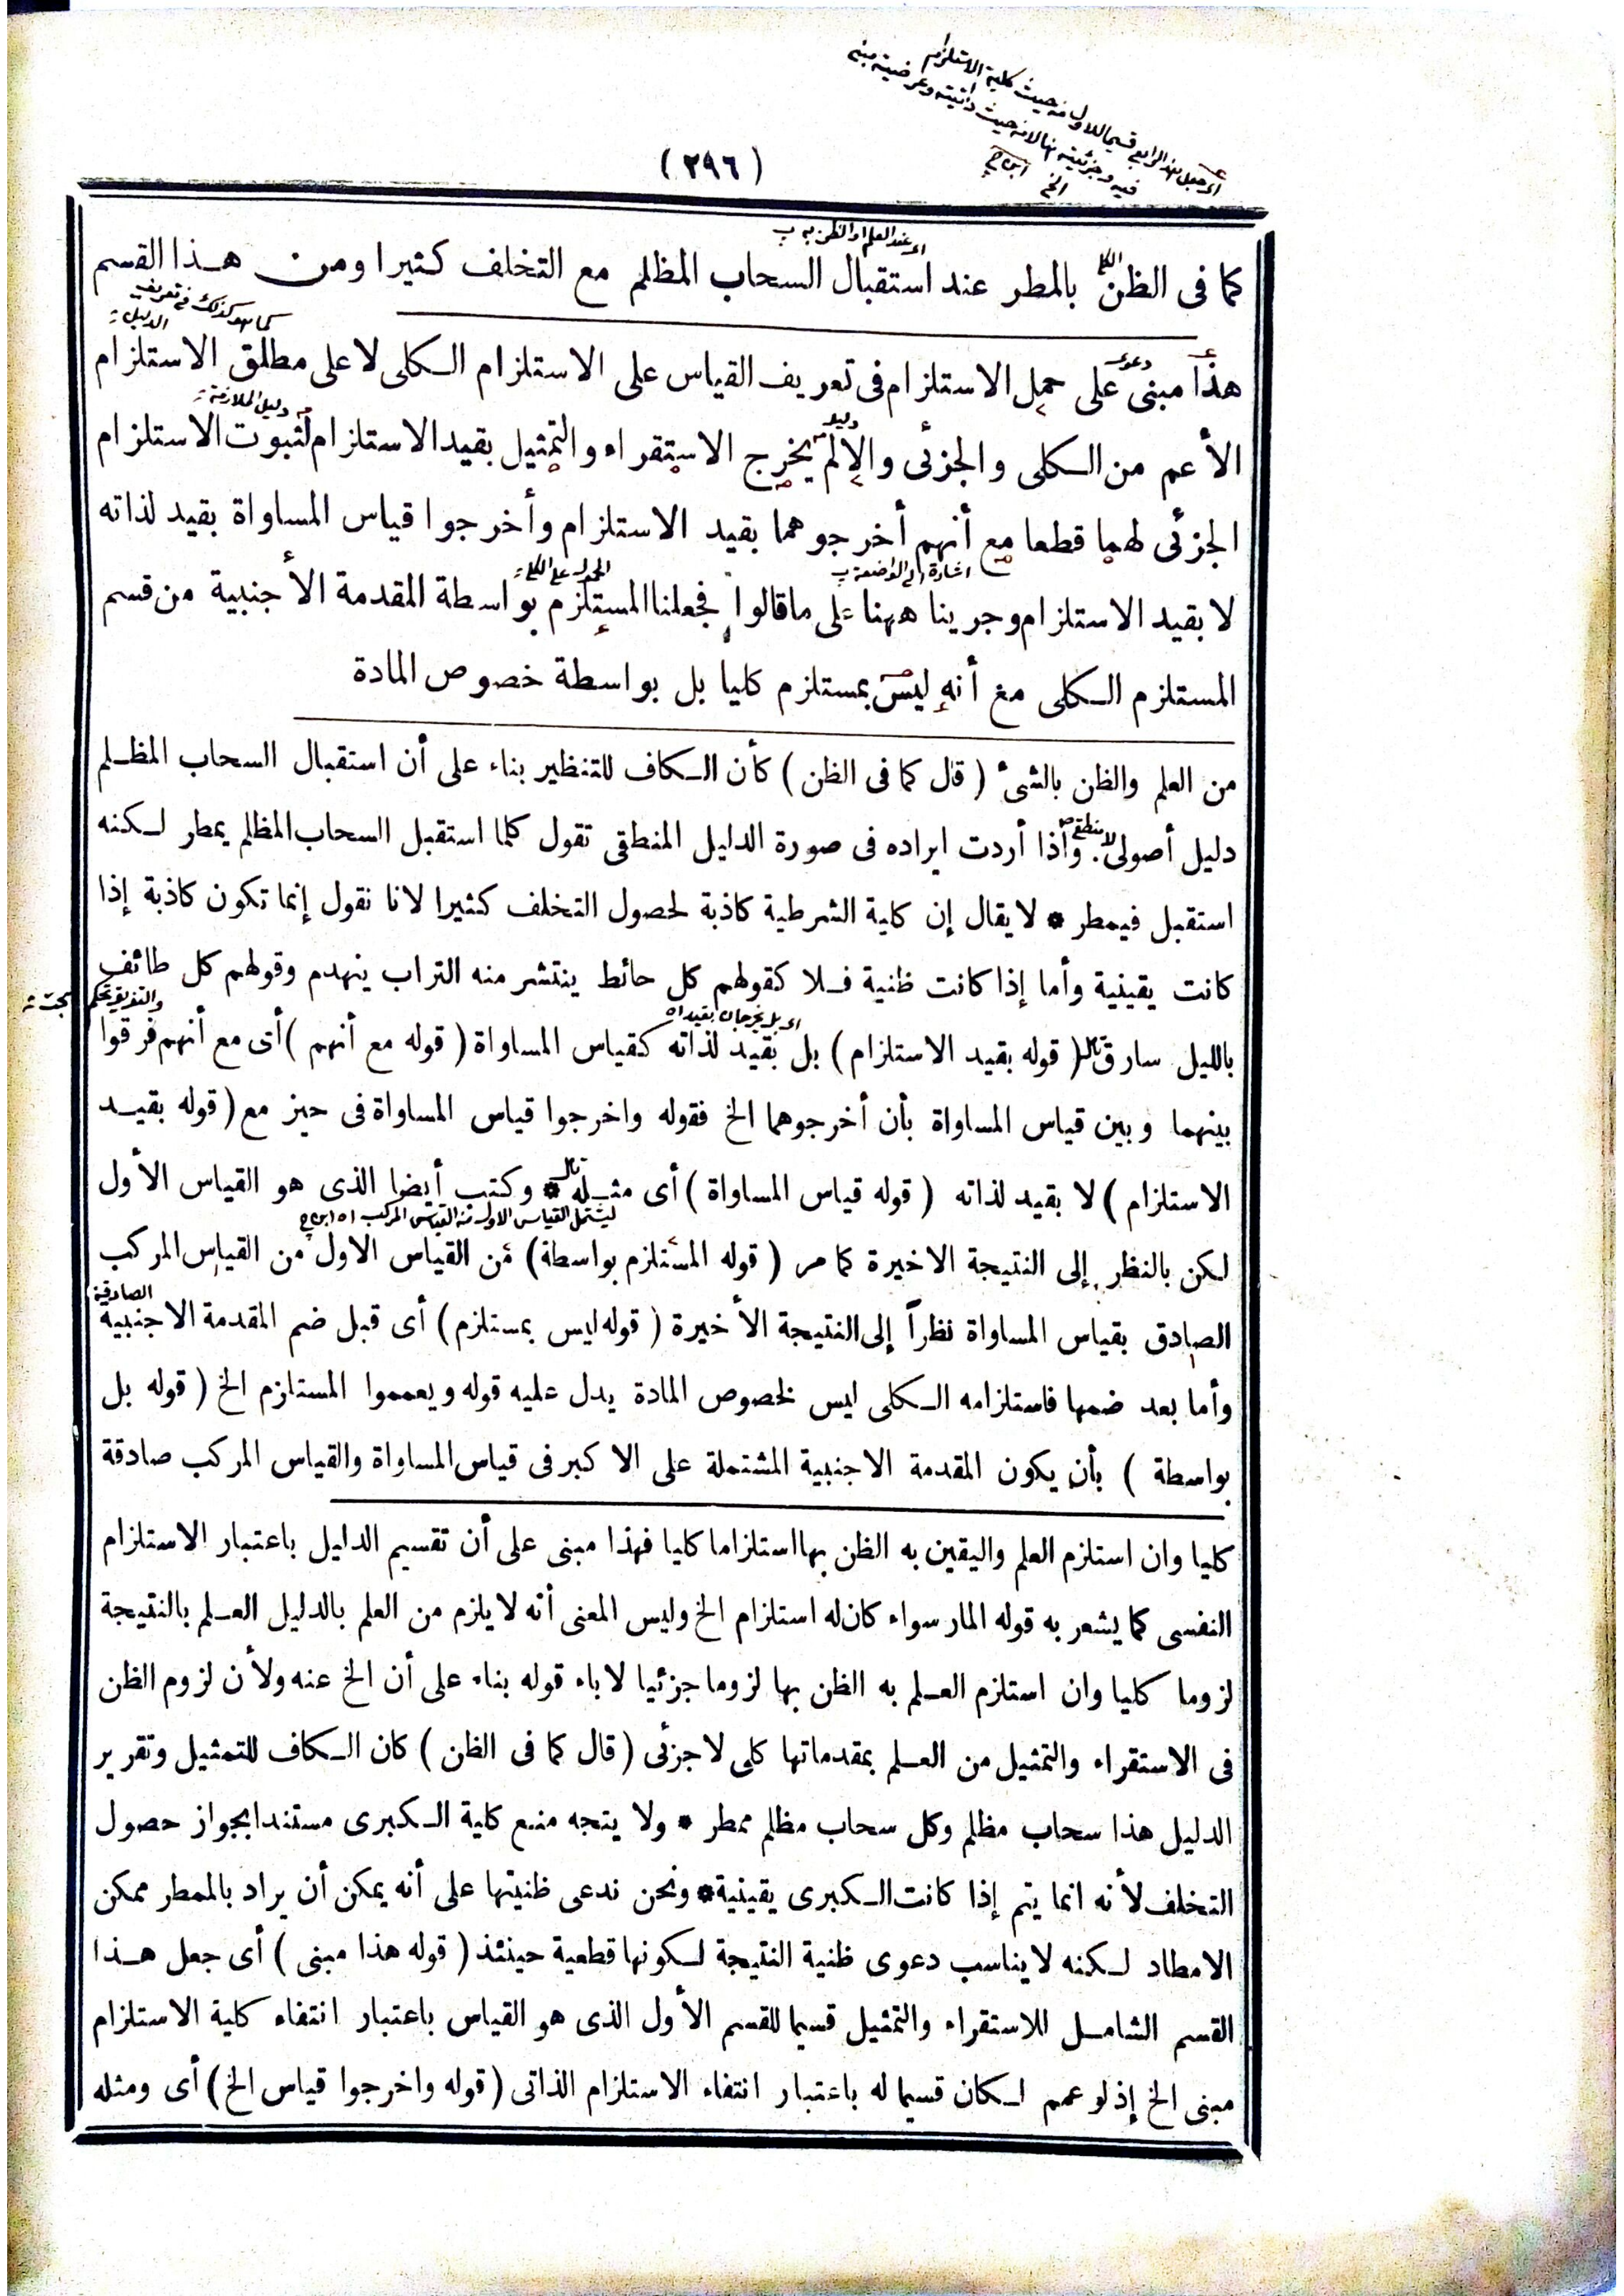 (٢٩٦)
كما فى الظن بالمطر عند استقبال السحاب المظلم مع التخلف كثيرا ومن هذا القسم
هذا مبنى على حمل الاستلزام فى تعريف القياس على الاستلزام الكلى لا على مطلق الاستلزام
الأعم من الكلى والجزئى والا لم يخرج الاستقراء والتمثيل بقيد الاستلزام لثبوت الاستلزام
الجزئى لهما قطعا مع أنهم أخرجوهما بقيد الاستلزام وأخرجوا قياس المساواة بقيد لذاته
لا بقيد الاستلزام وجرينا ههنا على ما قالوا فجعلنا المستلزم بواسطة المقدمة الأجنبية من قسم
المستلزم الكلى مع أنه ليس بمستلزم كليا بل بواسطة خصوص المادة
من العلم والظن بالشئ ( قال كما فى الظن ) كأن الكاف للتنظير بناء على أن استقبال السحاب المظلم
دليل أصولى وإذا أردت ايراده فى صورة الدليل المنطقى تقول كلما استقبل السحاب المظلم يمطر لكنه
استقبل فيمطر * لا يقال إن كلية الشرطية كاذبة لحصول التخلف كثيرا لانا نقول إنما تكون كاذبة إذا
كانت يقينية وأما إذا كانت ظنية فلا كقولهم كل حائط ينتشر منه التراب ينهدم وقولهم كل طائف
بالليل سارق ( قوله بقيد الاستلزام ) بل بقيد لذاته كقياس المساواة ( قوله مع أنهم ) أى مع أنهم فرقوا
بينهما وبين قياس المساواة بأن أخرجوهما الخ فقوله واخرجوا قياس المساواة فى حيز مع ( قوله بقيد
الاستلزام ) لا بقيد لذاته ( قوله قياس المساواة ) أى مثله * وكتب أيضا الذى هو القياس الأول
لكن بالنظر إلى النتيجة الاخيرة كما مر ( قوله المستلزم بواسطة ) من القياس الاول من القياس المركب
الصادق بقياس المساواة نظراً إلى النتيجة الأخيرة ( قوله ليس بمستلزم ) أى قبل ضم المقدمة الاجنبية
وأما بعد ضمها فاستلزامه الكلى ليس لخصوص المادة يدل عليه قوله ويعمموا المستلزم الخ ( قوله بل
بواسطة ) بأن يكون المقدمة الاجنبية المشتملة على الاكبر فى قياس المساواة والقياس المركب صادقة
كليا وان استلزم العلم واليقين به الظن بها استلزاما كليا فهذا مبنى على أن تقسيم الدليل باعتبار الاستلزام
النفسى كما يشعر به قوله المار سواء كان له استلزام الخ وليس المعنى أنه لا يلزم من العلم بالدليل العلم بالنتيجة
لزوما كليا وان استلزم العلم به الظن بها لزوما جزئيا لاباء قوله بناء على أن الخ عنه ولأن لزوم الظن
فى الاستقراء والتمثيل من العلم بمقدماتها كلى لا جزئى ( قال كما فى الظن ) كان الكاف للتمثيل وتقرير
الدليل هذا سحاب مظلم وكل سحاب مظلم ممطر * ولا يتجه منع كلية الكبرى مستندا بجواز حصول
التخلف لأنه انما يتم إذا كانت الكبرى يقينية * ونحن ندعى ظنيتها على أنه يمكن أن يراد بالممطر ممكن
الامطاد لكنه لا يناسب دعوى ظنية النتيجة لكونها قطعية حينئذ ( قوله هذا مبنى ) أى جعل هذا
القسم الشامل للاستقراء والتمثيل قسيما للقسم الأول الذى هو القياس باعتبار انتفاء كلية الاستلزام
مبنى الخ إذ لو عمم لكان قسيما له باعتبار انتفاء الاستلزام الذاتى ( قوله واخرجوا قياس الخ ) أى ومثله